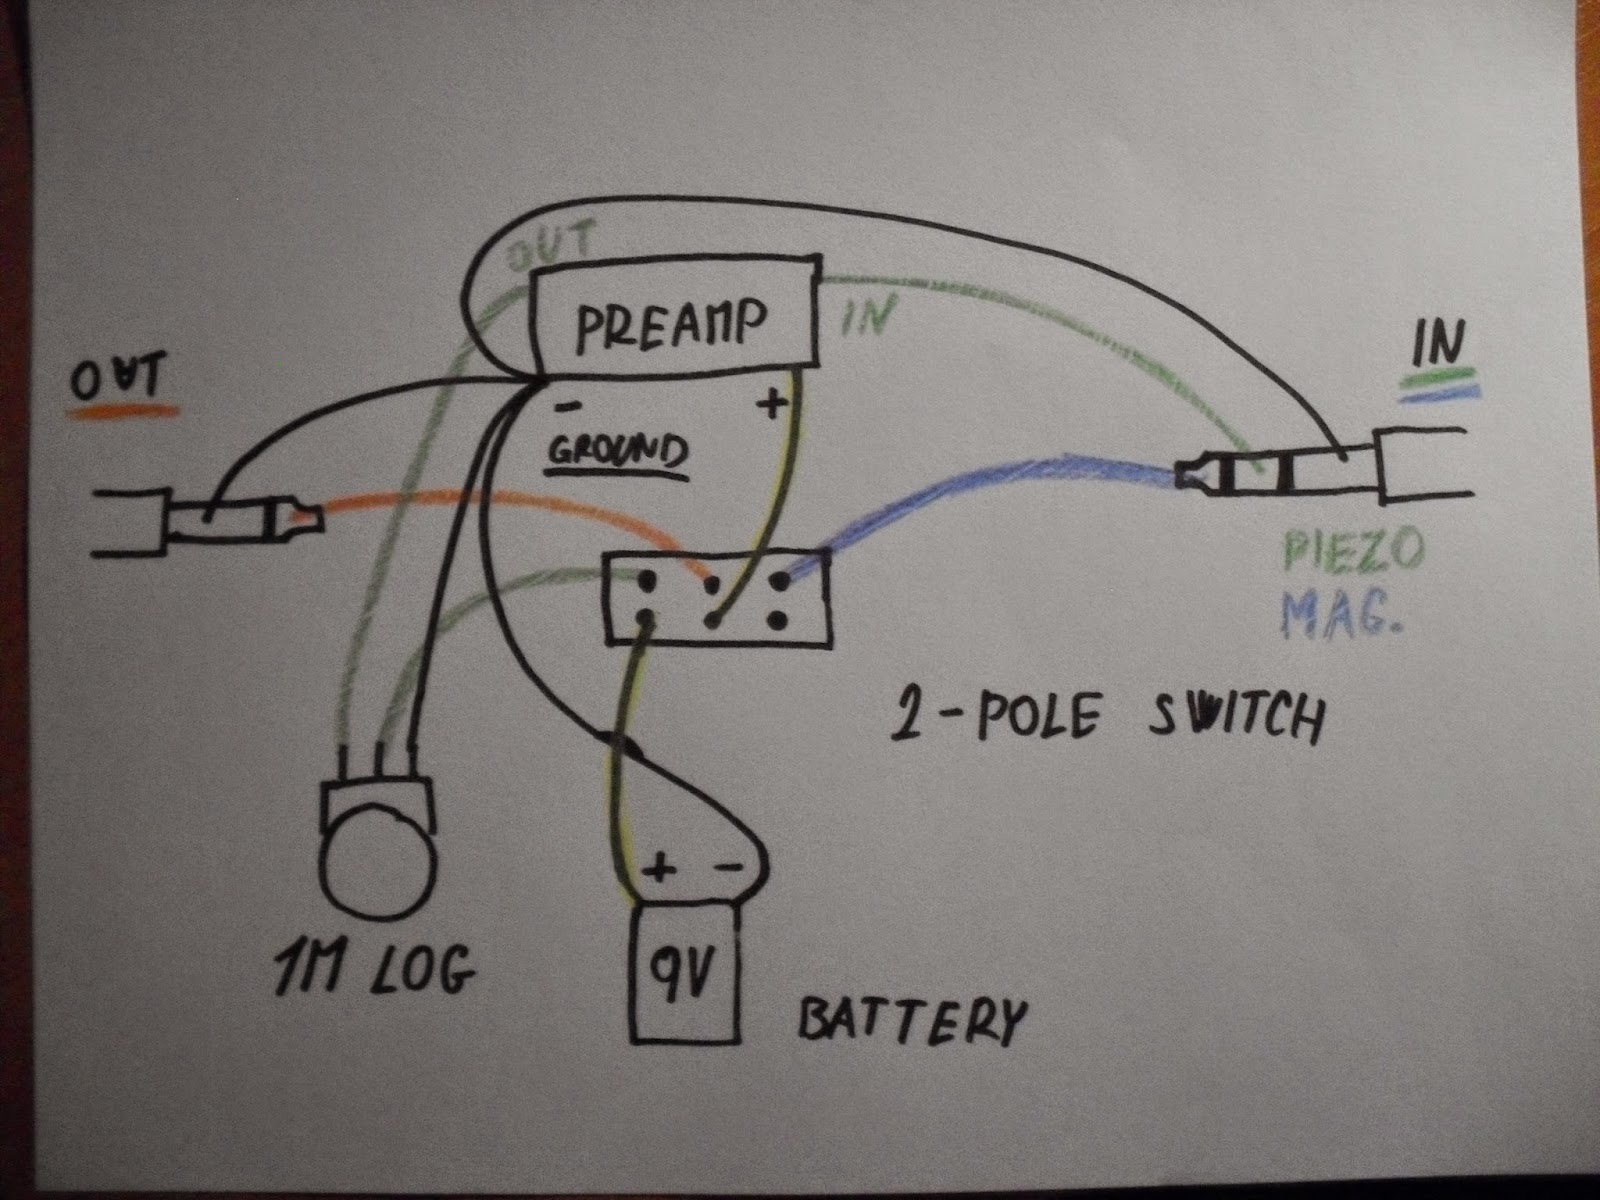 OUT
PREAMP
IN
OUT
IN
-
+
GROUND
PIEZO
MAG.
2-POLE SWITCH
+ -
1M LOG
9V
BATTERY